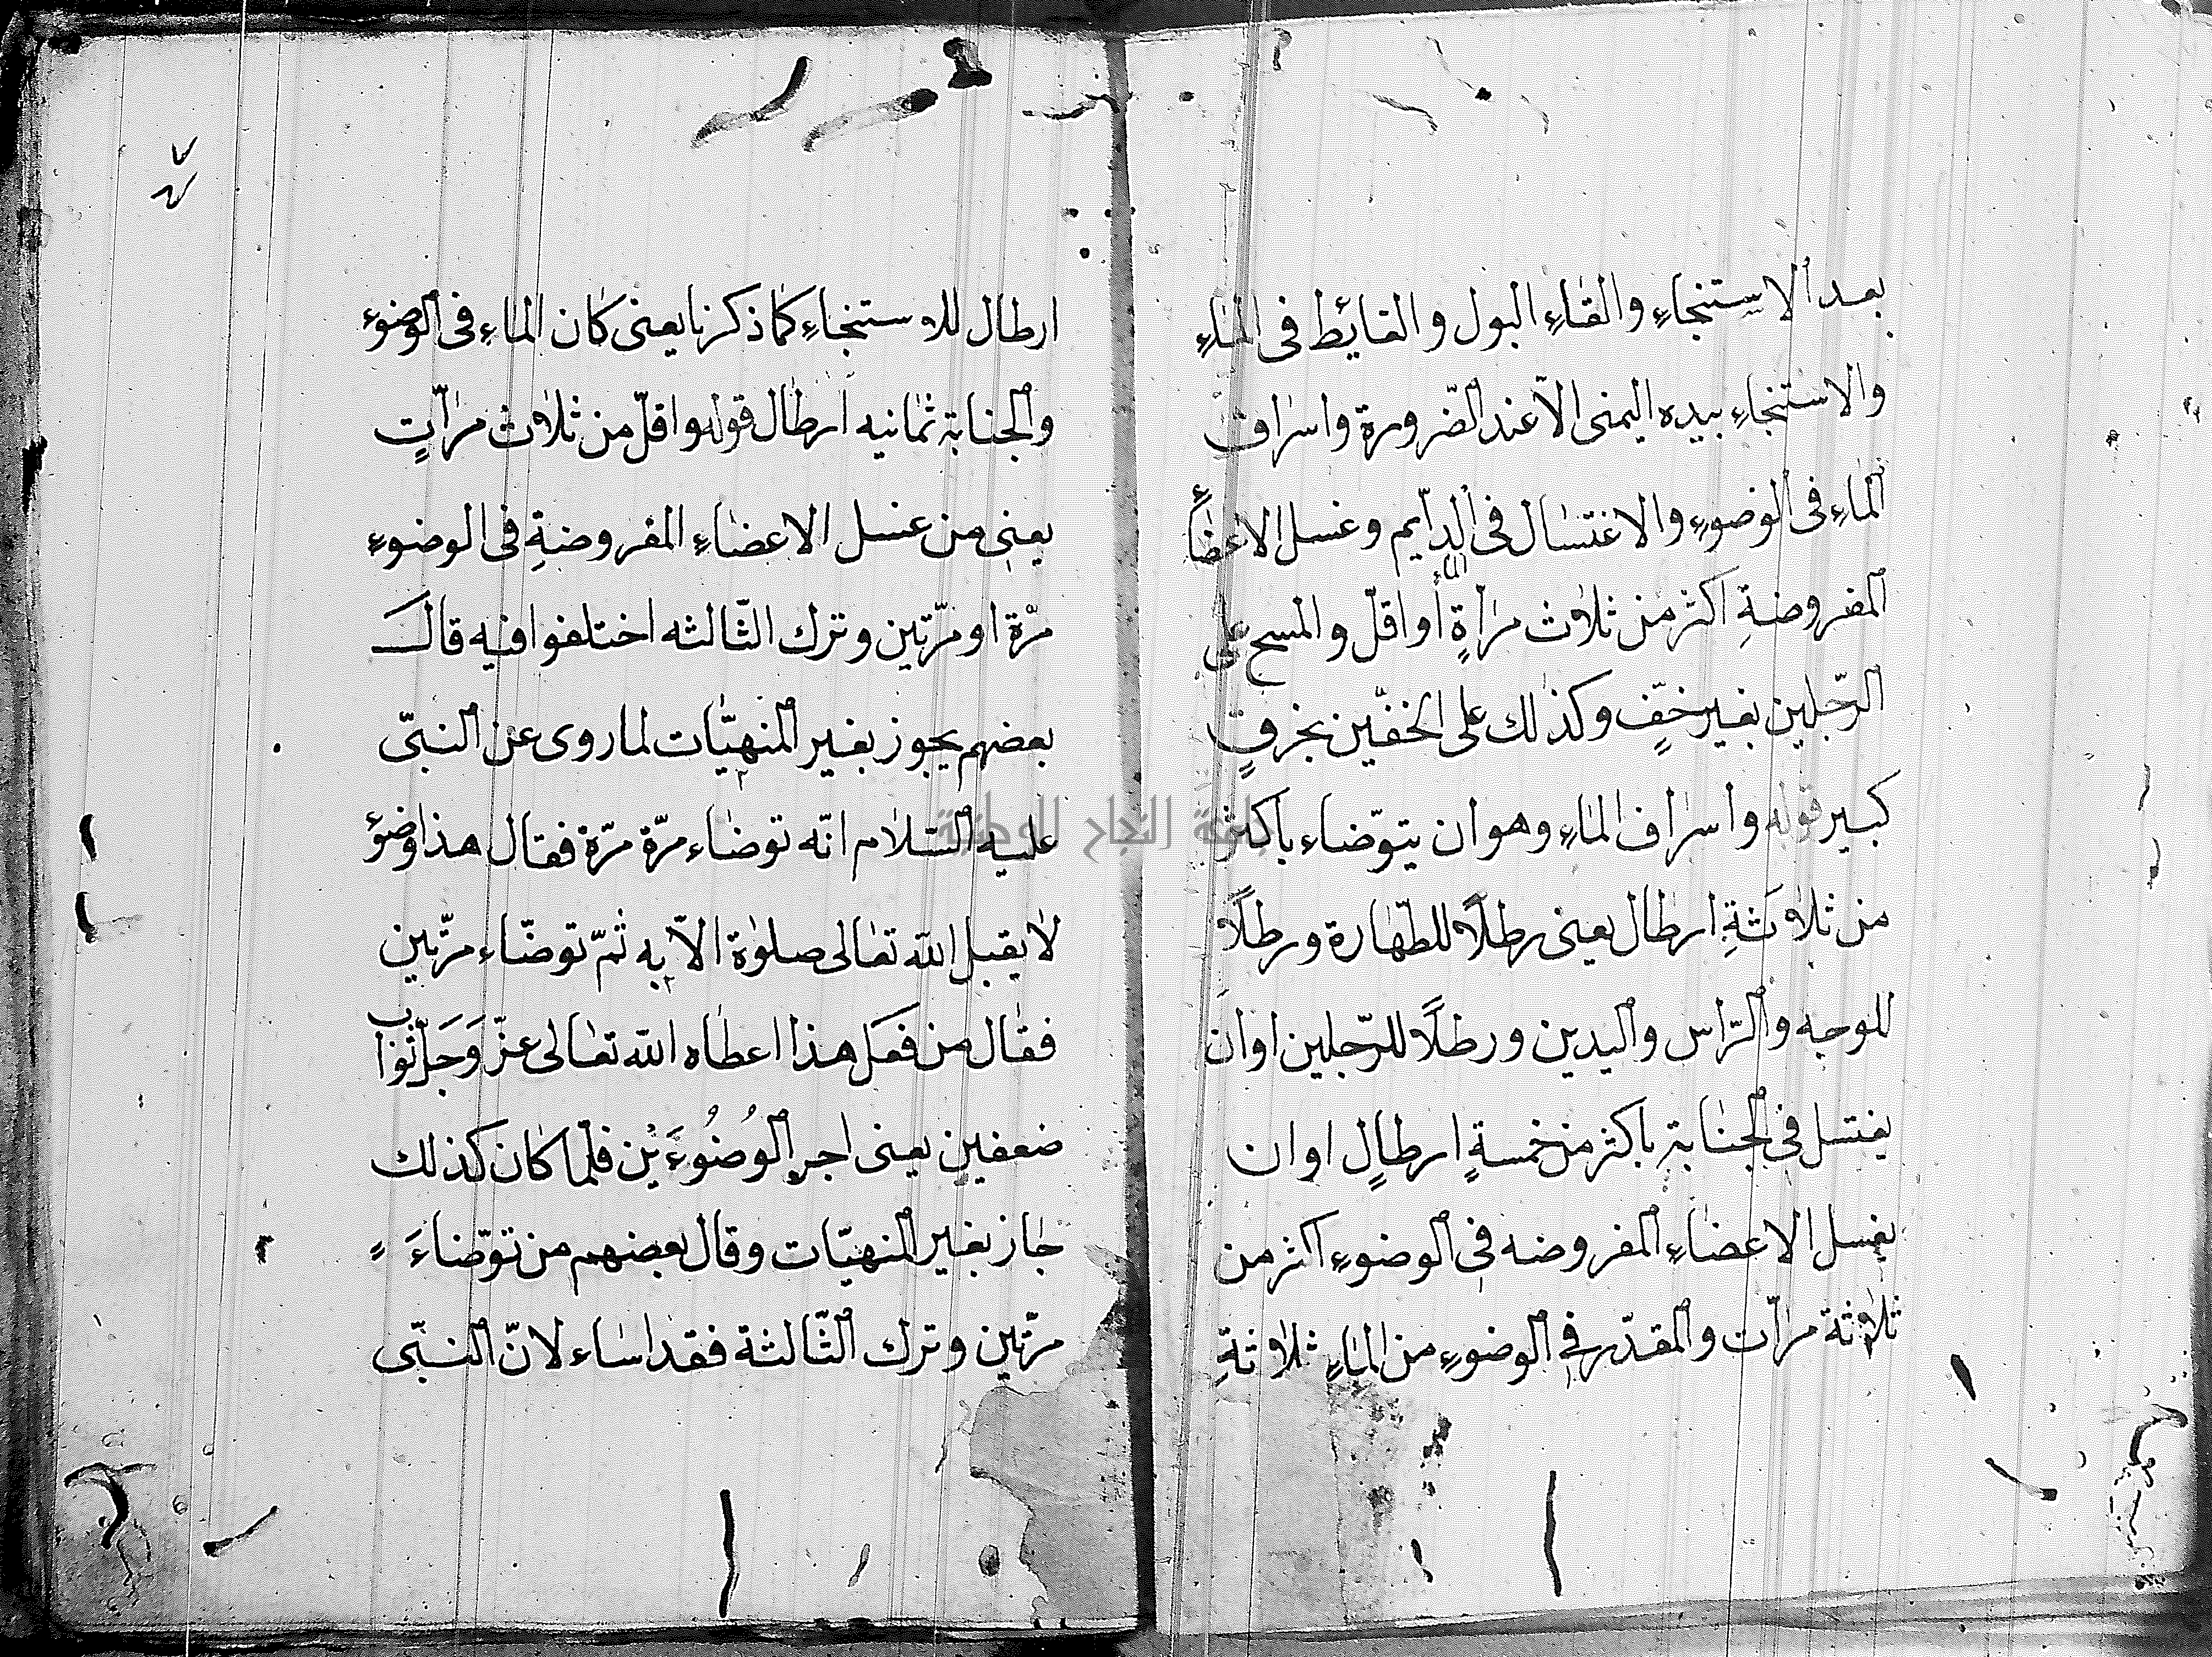 بعد الاستنجاءِ والقاءِ البول والغائط فى الماءِ
والاستنجاءِ بيده اليمنى الاّ عند الضّرورة واسراف
الماءِ فى الوضوءِ والاغتسال فى الدّايم وغسل الاعضاءِ
الماء
المفروضةِ اكثر من ثلاث مراةٍ أو اقلّ والمسح على
الرّجلين بغير خفٍّ وكذلك على الخفّين بخرقٍ
كبير قوله واسراف الماءِ وهو ان يتوّضاء باكثر
من ثلاثَةِ ارطال يعنى رطلًا للطّهارة ورطلًا
للوجه والرّاس واليدين ورطلًا للرّجلين اوان
يغتسل فى الجنابة باكثر من خمسةٍ ارطالٍ اوان
يغسل الاعضاءِ المفروضه فى الوضوءِ اكثر من
ثلاثة مراّت والمقدّر فى الوضوءِ من الماءِ ثلاثةِ
ارطال للاستنجاءِ كما ذكرنا يعنى كان الماءِ فى الوضوء
والجنابة ثمانيه ارطال قوله واقلّ من ثلاث مراّتٍ
يعنى من غسل الاعضاءِ المفروضةِ فى الوضوءِ
مرّة او مرّتين وترك الثّالثه اختلفوا فيه قال
بعضهم يجوز بغير المنهيّات لما روى عن النبىّ
عليه السّلام انّه توضاء مرّة مرّة فقال هذا وضوء
لا يقبل الله تعالى صلوٰة الاّ به ثمّ توضّاء مرّتين
فقال من فعل هذا اعطاه الله تعالى عزّ وَجَلّ ثواب
ضعفين يعنى اجر الوُضُوءَيْن فلمّا كان كذلك
جاز بغير المنهيّات وقال بعضهم من توّضاءَ
مرّتين وترك الثّالثة فقد اساء لانّ النبىّ
جامعة النجاح الوطنية